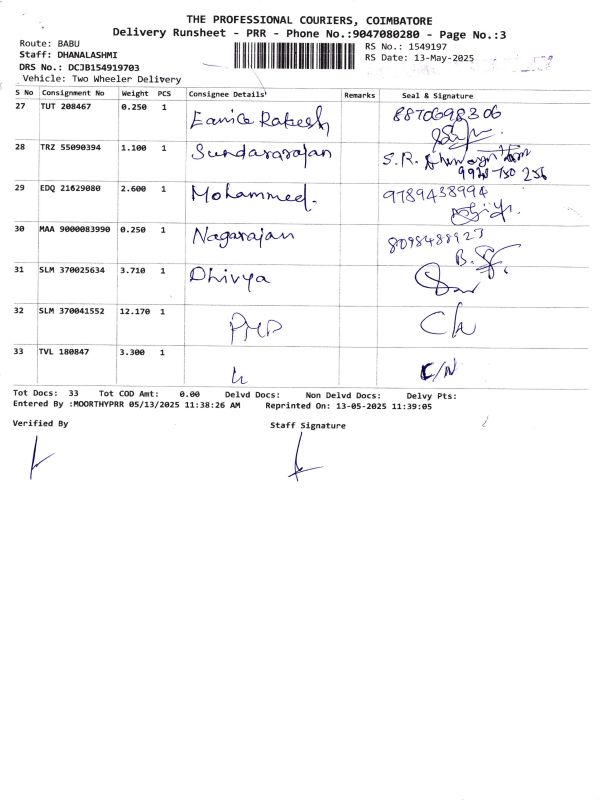 THE PROFESSIONAL COURIERS, COIMBATORE
Delivery Runsheet - PRR - Phone No.:9047080280 - Page No.:3
Route: BABU
Staff: DHANALASHMI
DRS No.: DCJB154919703
Vehicle: Two Wheeler Delivery
RS No.: 1549197
RS Date: 13-May-2025
S No Consignment No Weight PCS Consignee Details Remarks Seal & Signature
27 TUT 208467 0.250 1 Rakesh 8870698306
28 TRZ 55090394 1.100 1 Sundararajan S.R.
29 EDQ 21629080 2.600 1 Mohammed. 9789438994
30 MAA 9000083990 0.250 1 Nagarajan 8098488923
31 SLM 370025634 3.710 1 Dhivya
32 SLM 370041552 12.170 1
33 TVL 180847 3.300 1 C/N
Tot Docs: 33 Tot COD Amt: 0.00 Delvd Docs: Non Delvd Docs: Delvy Pts:
Entered By :MOORTHYPRR 05/13/2025 11:38:26 AM Reprinted On: 13-05-2025 11:39:05
Verified By Staff Signature